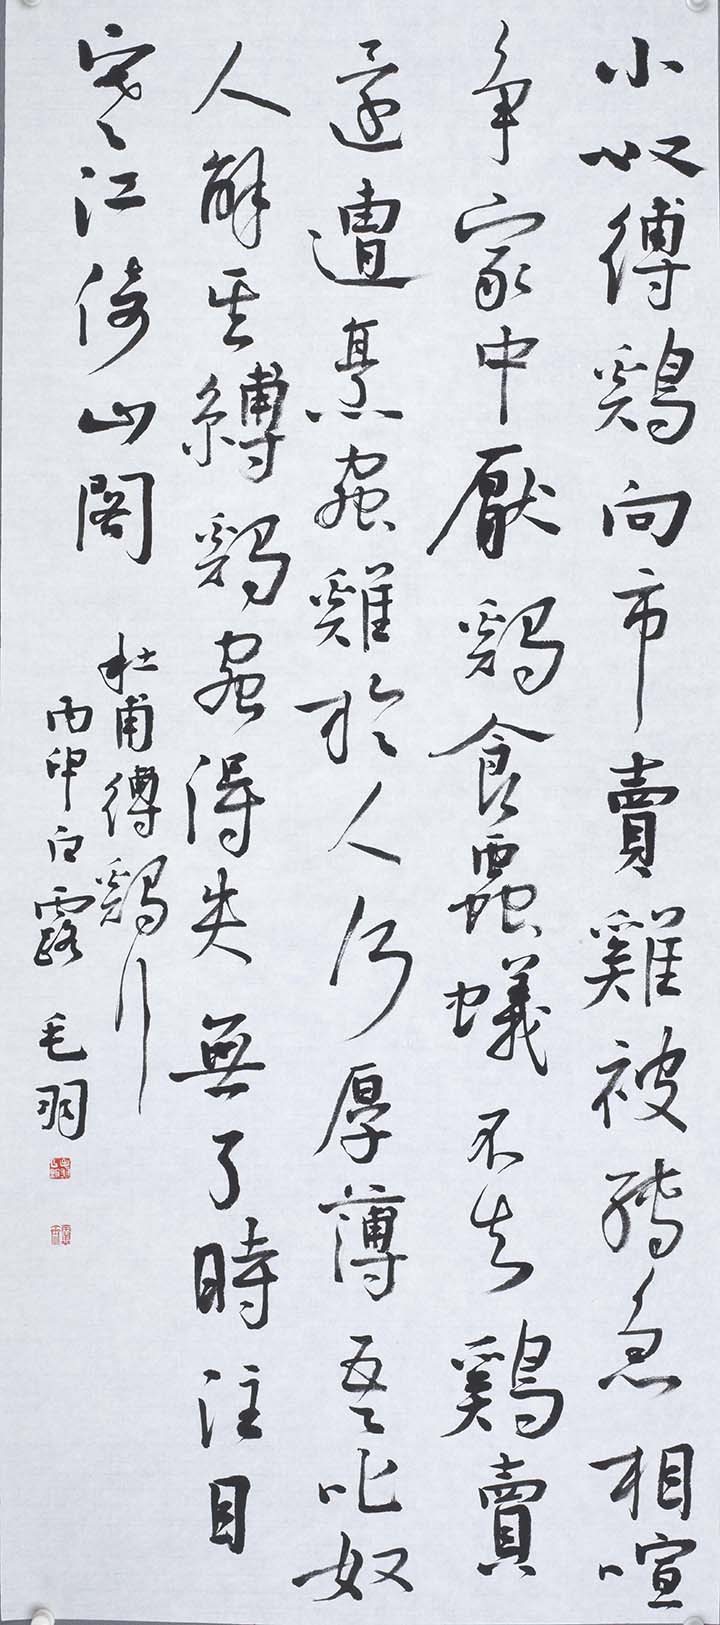 小奴縛鷄向市賣雞被縛急相喧
争家中厭鷄食蟲蟻不知鷄賣
還遭烹虫雞於人何厚薄吾叱奴
人解其縛鷄虫得失無了時注目
寒江倚山閣
杜甫縛鷄行
丙申白露 毛羽